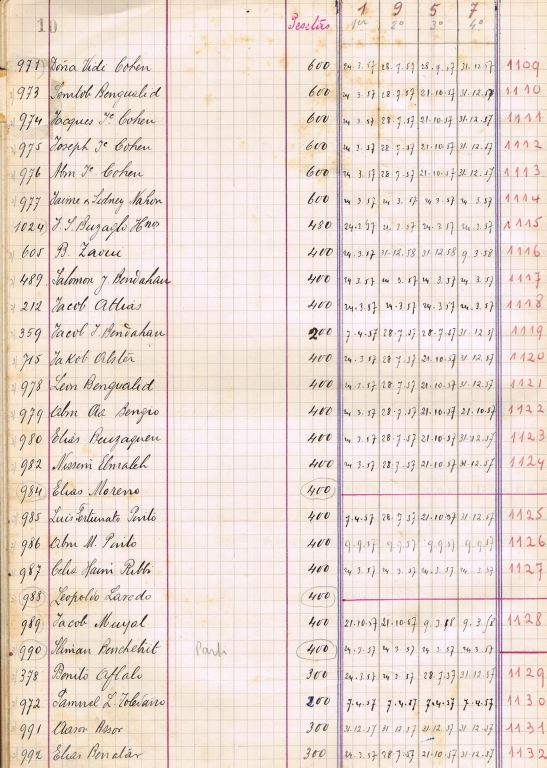 10 Pesetas 1 9 5 7
1er 2o 3o 4o
971 Doña Vidi Cohen 600 24.3.57 28.7.57 28.7.57 31.12.57 1109
973 Semtob Bengualid 600 24.3.57 28.7.57 21.10.57 31.12.57 1110
974 Jacques Cohen 600 24.3.57 28.7.57 21.10.57 31.12.57 1111
975 Joseph Cohen 600 24.3.57 28.7.57 21.10.57 31.12.57 1112
976 Abm Cohen 600 24.3.57 28.7.57 21.10.57 31.12.57 1113
977 Jaime & Sidney Nahon 600 24.3.57 24.3.57 24.3.57 24.3.57 1114
1024 J. S. Buzaglo Hnos 480 24.3.57 24.3.57 24.3.57 24.3.57 1115
605 B. 400 24.3.57 31.12.58 31.12.58 9.3.58 1116
489 Salomon J. Bendahan 400 24.3.57 24.3.57 24.3.57 24.3.57 1117
212 Jacob Athias 400 24.3.57 24.3.57 24.3.57 24.3.57 1118
359 Jacob J. Bendahan 200 7.4.57 28.7.57 28.7.57 31.12.57 1119
715 Jakob Alster 400 24.3.57 28.7.57 21.10.57 31.12.57 1120
978 Leon Bengualid 400 24.3.57 28.7.57 21.10.57 31.12.57 1121
979 Abm Bengio 400 24.3.57 28.7.57 21.10.57 21.10.57 1122
980 Elias Benzaquen 400 24.3.57 28.7.57 21.10.57 31.12.57 1123
982 Nissim Elmaleh 400 24.3.57 28.7.57 21.10.57 31.12.57 1124
984 Elias Moreno 400
985 Luis Fortunato Pinto 400 7.4.57 28.7.57 21.10.57 31.12.57 1125
986 Abm M. Pinto 400 9.9.57 9.9.57 9.9.57 9.9.57 1126
987 Celia Haim Ribbi 400 24.3.57 24.3.57 24.3.57 24.3.57 1127
988 Leopoldo Laredo 400
989 Jacob Muyal 400 21.10.57 21.10.57 9.3.58 9.3.58 1128
990 Penchehit Parti 400 24.3.57 24.3.57 24.3.57 24.3.57
378 Benito Aflalo 300 24.3.57 24.3.57 28.7.57 31.12.57 1129
972 Samuel L. Toledano 200 7.4.57 7.4.57 7.4.57 7.4.57 1130
991 Aaron Assor 300 31.12.57 31.12.57 31.12.57 31.12.57 1131
992 Elias Benatar 300 24.3.57 28.7.57 21.10.57 31.12.57 1132